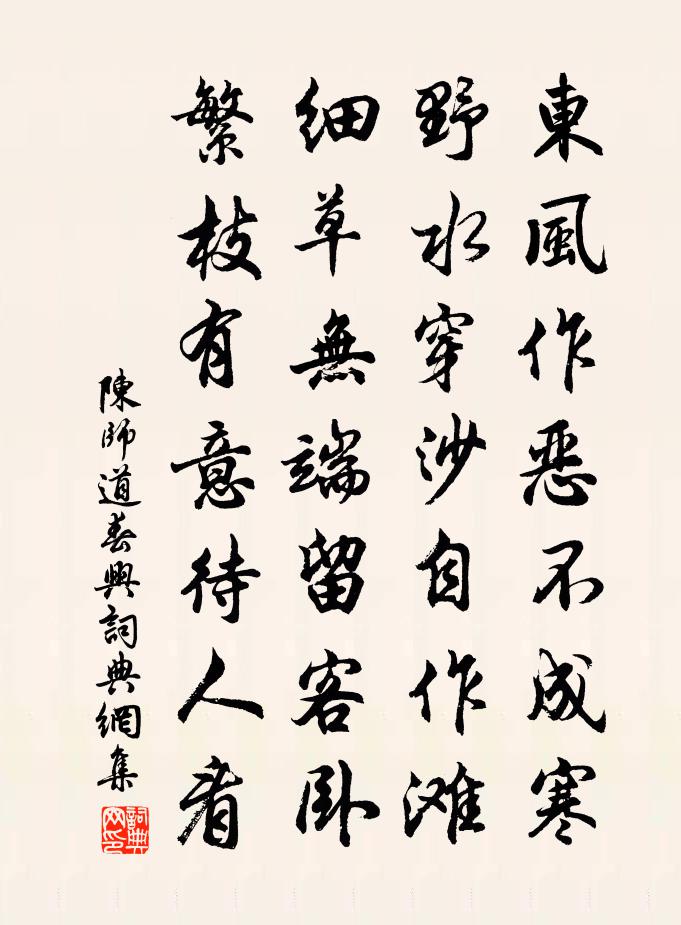 東風作惡不成寒
野水穿沙自作滩
細草無端留客卧
繁枝有意待人看
陳師道春興詞典網集
詞典網印